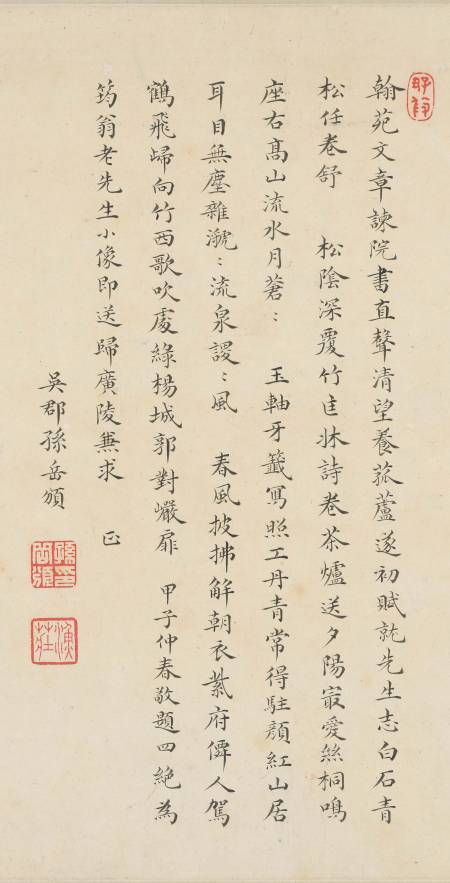 翰苑文章諫院書直聲清望養菰蘆遂初賦就先生志白石青
松任卷舒 松陰深覆竹匡牀詩卷茶爐送夕陽㝡愛絲桐鳴
座右髙山流水月蒼〻 玉軸牙籤寫照工丹青常得駐顏紅山居
耳目無塵雜㶁〻流泉謖〻風 春風披拂解朝衣紫府僊人駕
鶴飛歸向竹西歌吹處綠楊城郭對巖扉 甲子仲春敬題四絕為
筠翁老先生小像即送歸廣陵兼求 正
吳郡孫岳頒
孫印岳頒
漁莊